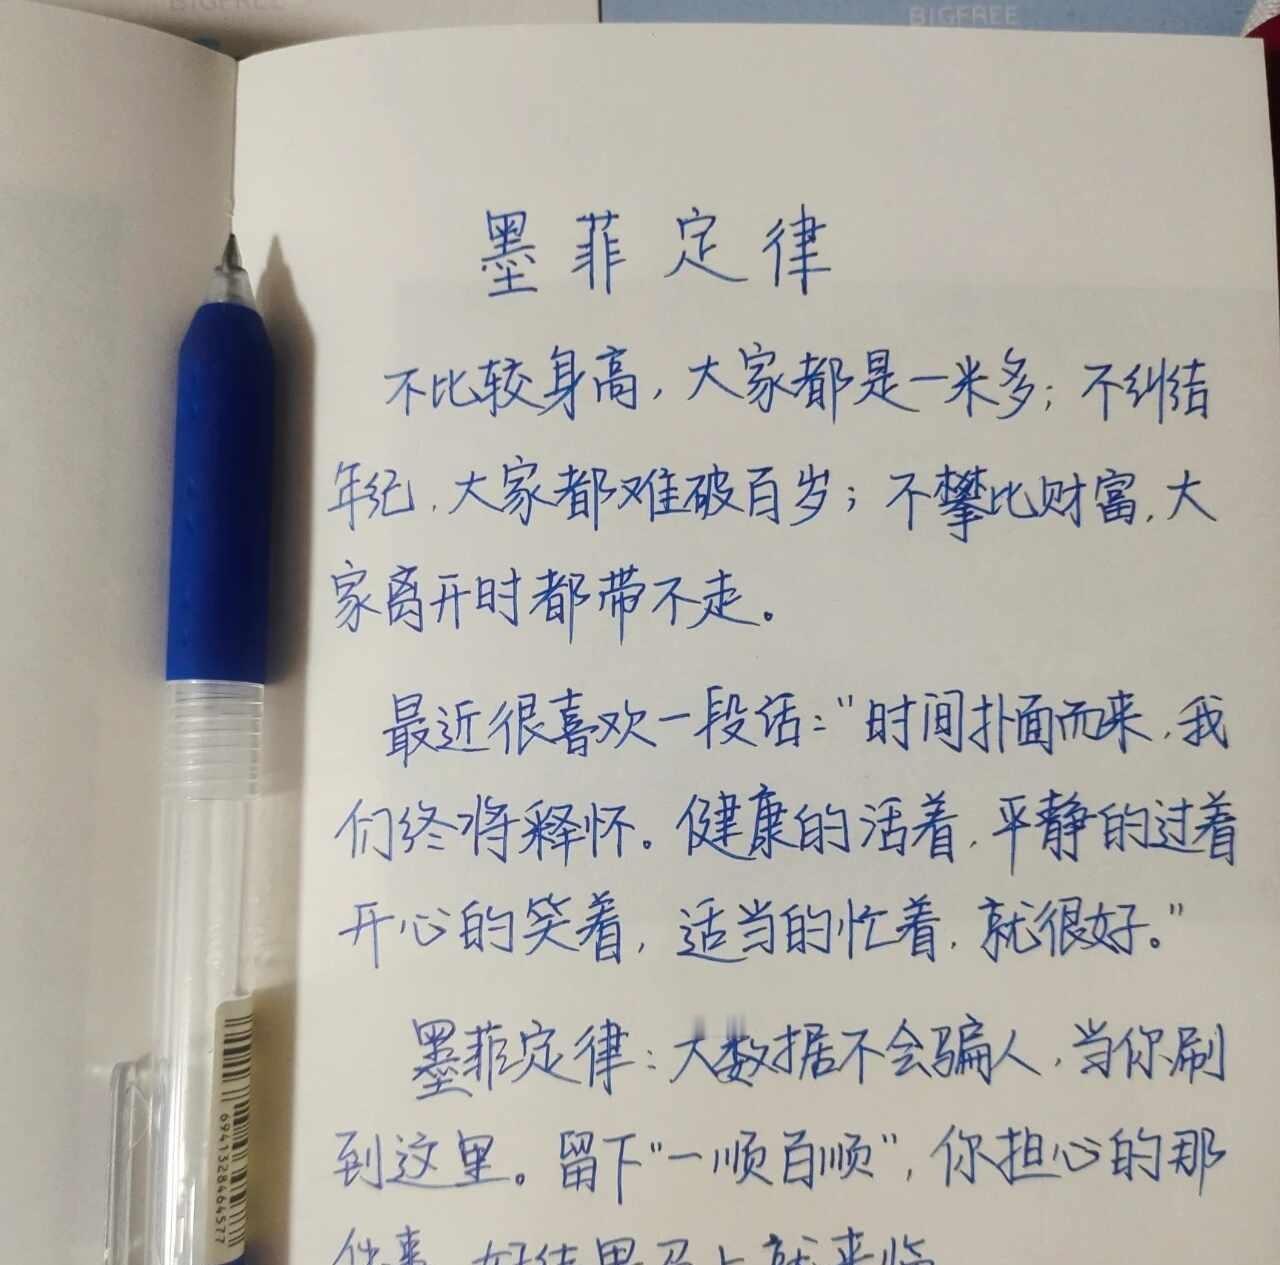 BIGFREE
BIGFREE
墨菲定律
不比较身高，大家都是一米多；不纠结
年纪，大家都难破百岁；不攀比财富，大
家离开时都带不走。
最近很喜欢一段话："时间扑面而来，我
们终将释怀。健康的活着，平静的过着
开心的笑着，适当的忙着，就很好。"
墨菲定律：大数据不会骗人，当你刷
到这里。留下"一顺百顺"，你担心的那
件事，好结果马上就来临
6941328464577